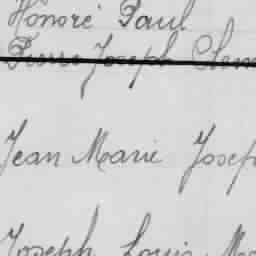 Honoré Paul
Pierre Joseph Clem
Jean Marie Josep
Joseph Louis Ma